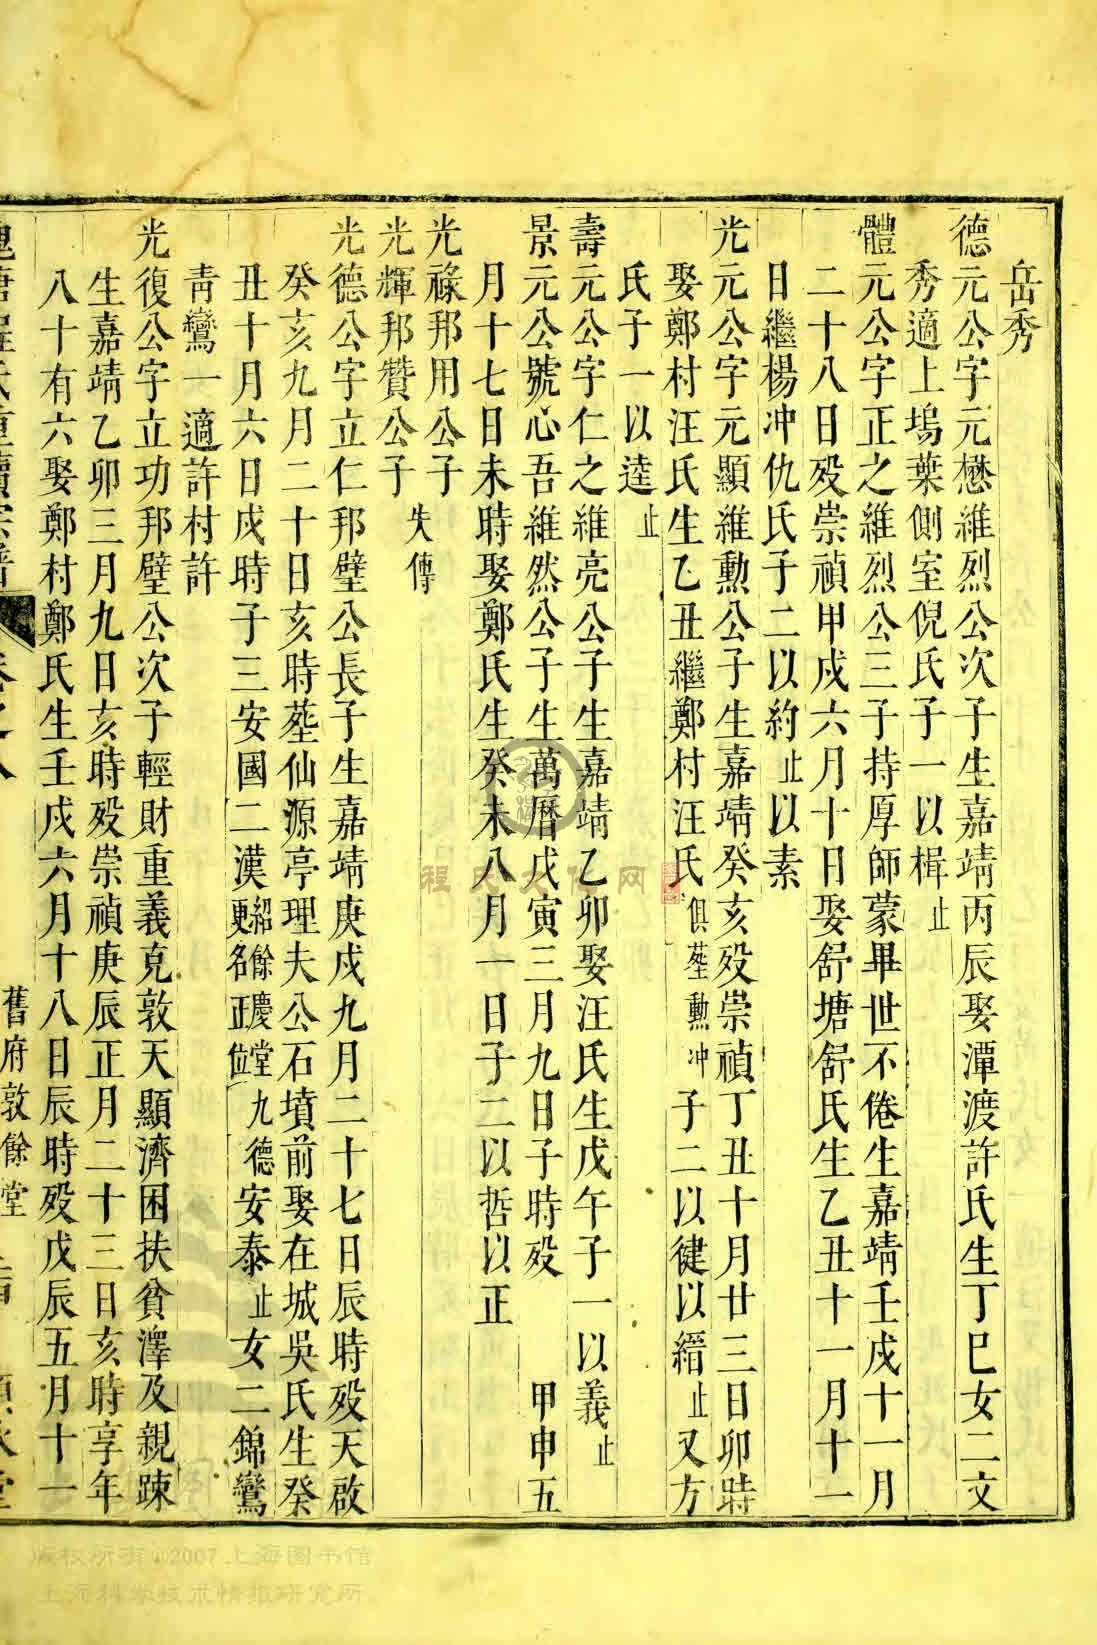 岳秀
德元公字元懋維烈公次子生嘉靖丙辰娶潭渡許氏生丁巳女二文
秀適上塢葉側室倪氏子一以楫止
體元公字正之維烈公三子持厚師蒙畢世不倦生嘉靖壬戌十一月
二十八日歿崇禎甲戌六月十日娶舒塘舒氏生乙丑十一月十二
日繼楊冲仇氏子二以約止以素
光元公字元顯維勳公子生嘉靖癸亥歿崇禎丁丑十月廿三日卯時
娶鄭村汪氏生乙丑繼鄭村汪氏俱塟勲冲子二以健以縉止又方
氏子一以逵止
壽元公字仁之維亮公子生嘉靖乙卯娶汪氏生戊午子一以義止
景元公號心吾維然公子生萬曆戊寅三月九日子時歿甲申五
月十七日未時娶鄭氏生癸未八月一日子二以哲以正
光祿邦用公子
失傳
光輝邦贊公子
光德公字立仁邦璧公長子生嘉靖庚戌九月二十七日辰時歿天啟
癸亥九月二十日亥時塟仙源亭理夫公石墳前娶在城吳氏生癸
丑十月六日戌時子三安國二漢紹餘慶堂更名正位九德安泰止女二錦鸞
青鸞一適許村許
光復公字立功邦璧公次子輕財重義克敦天顯濟困扶貧澤及親踈
生嘉靖乙卯三月九日亥時歿崇禎庚辰正月二十三日亥時享年
八十有六娶鄭村鄭氏生壬戌六月十八日辰時歿戊辰五月十一
塘程氏重續宗譜 卷之八 舊府敦餘堂
程氏文化网
版权所有©2007上海图书馆
上海科学技术情报研究所